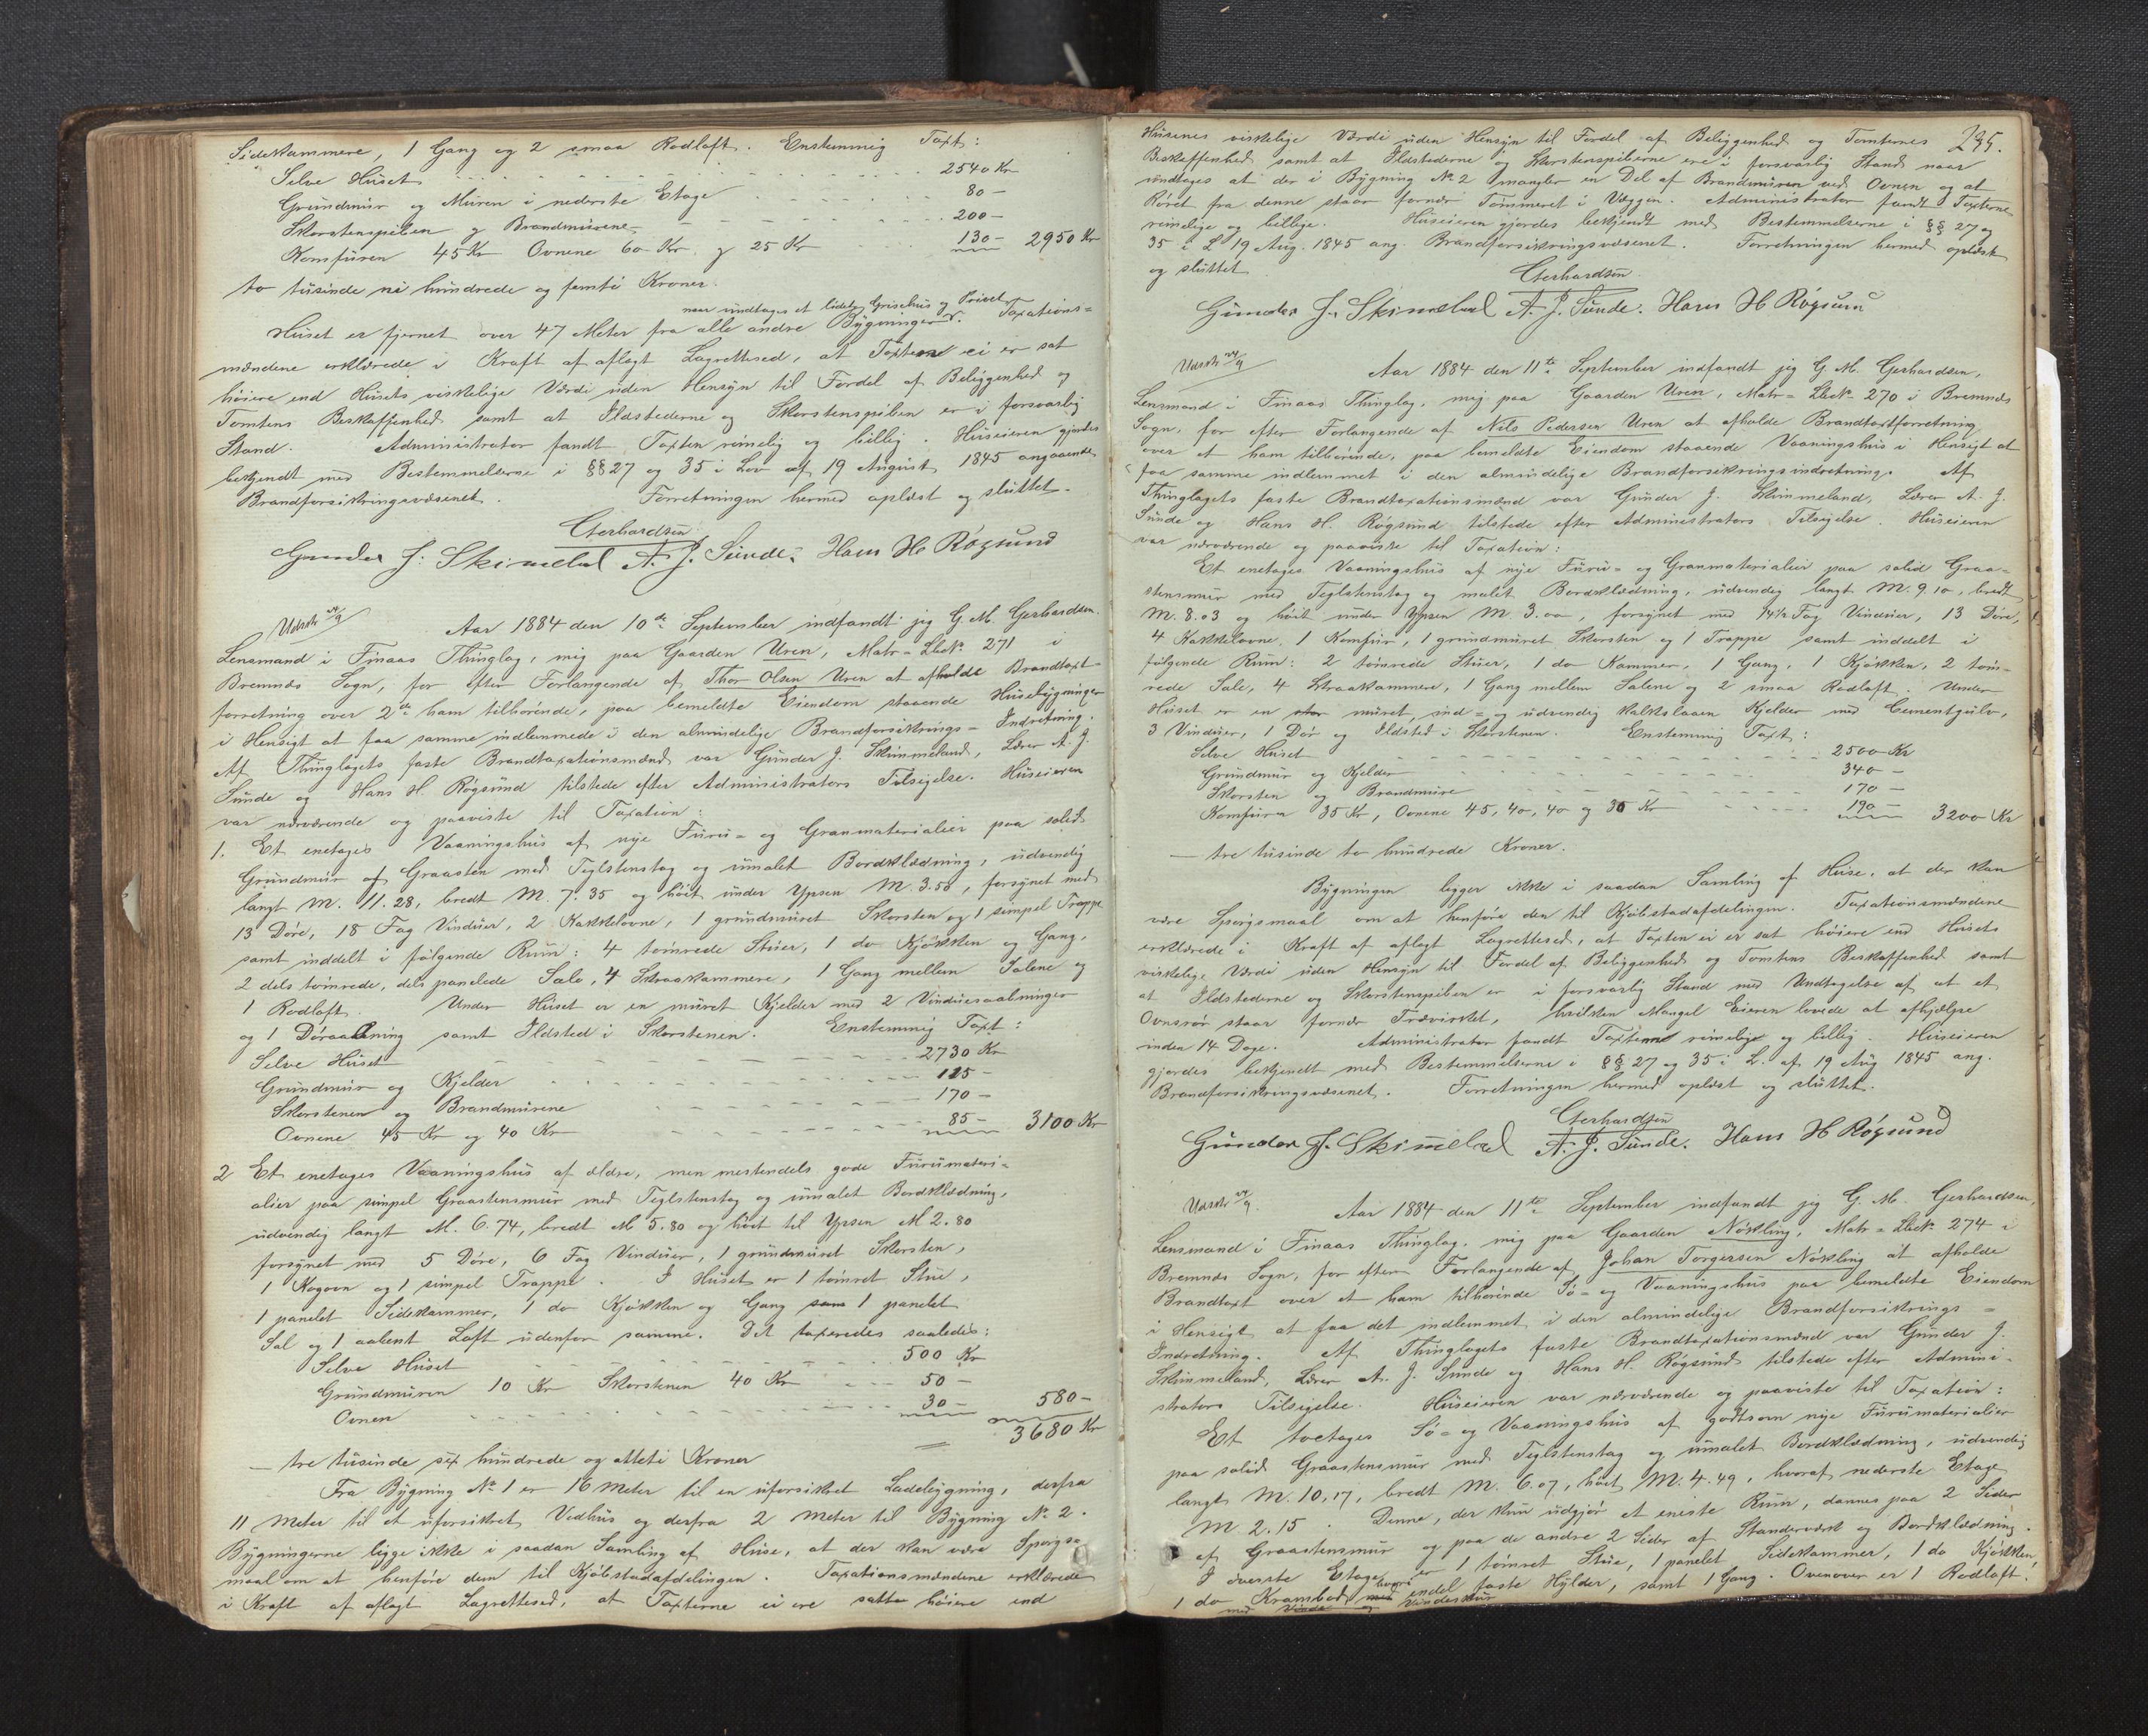 Sidekammere, 1 Gang og 2 smaa Rodloft. Enstemmig Taxt:
Selve Huset 2540 Kr
Grundmur og Muren i nederste Etage 80 —
Skorstenspiben og Brandmurene 200 —
Komfuren 45 Kr Ovnene 60 Kr og 25 Kr 130 — 2950 Kr
to tusinde ni hundrede og femti Kroner.
naar undtages et lidet Grisehus og Privet
Huset er fjernet over 47 Meter fra alle andre Bygninger. Taxations=
mændene erklærede i Kraft af aflagt Lagrettesed, at Taxten ei er sat
høiere end Husets virkelige Værdi uden Hensyn til Fordel af Beliggenhed og
Tomtens Beskaffenhed samt at Ildstederne og Skorstenspiben er i forsvarlig
Stand. Administrator fandt Taxten rimelig og billig. Huseieren gjordes
bekjendt med Bestemmelserne i §§ 27 og 35 i Lov af 19 August 1845 angaaende
Brandforsikringsvæsenet. Forretningen hermed oplæst og sluttet.
Gerhardsen
Gunder J. Skimelad A. J. Sunde. Hans H Røgsund
Udskr
Aar 1884 den 10de September indfandt jeg G. M. Gerhardsen.
Lensmand i Finaas Thinglag, mig paa Gaarden Uren, Matr=Løbeno 271 i
Bremnæs Sogn, for efter Forlangende af Thor Olsen Uren at afholde Brandtaxt-
forretning over 2de ham tilhørende, paa bemeldte Eiendom staaende Husebygninger
i Hensigt at faa samme indlemmede i den almindelige Brandforsikrings=Indretning.
Af Thinglagets faste Brandtaxationsmænd var Gunder J. Skimmeland, Lærer A. J.
Sunde og Hans H. Røgsund tilstede efter Administrators Tilsigelse. Huseieren
var nærværende og paaviste til Taxation:
1. Et enetages Vaaningshus af nye Furu= og Granmaterialier paa solid
Grundmur af Graasten med Teglstenstag og umalet Bordklædning, udvendig
langt M. 11.28, bredt M. 7.35 og høit under Ypsen M. 3.50, forsynet med
13 Døre, 18 Fag Vinduer, 2 Kakkelovne, 1 grundmuret Skorsten og 1 simpel Trappe
samt inddelt i følgende Rum: 4 tømrede Stuer, 1 do Kjøkken og Gang,
2 dels tømrede, dels panelede Sale, 4 Skraakammere, 1 Gang mellem Salene og
1 Rodloft. Under Huset er en muret Kjelder med 2 Vinduesaabninger
og 1 Døraabning samt Ildsted i Skorstenen. Enstemmig Taxt:
Selve Huset 2730 Kr
Grundmur og Kjelder 115 —
Skorstenen og Brandmurene 170 —
Ovnene 45 Kr og 40 Kr 85 — 3100 Kr
2 Et enetages Vaaningshus af ældre, men mestendels gode Furumateri=
alier paa simpel Graastensmur med Teglstenstag og umalet Bordklædning,
udvendig langt M. 6.74, bredt M 5.80 og høit til Ypsen M 2.80
forsynet med 5 Døre, 6 Fag Vinduer, 1 grundmuret Skorsten,
1 Kogovn og 1 simpel Trappe. I Huset er 1 tømret Stue,
1 panelet Sidekammer, 1 do Kjøkken og Gang sam 1 panelet
Sal og 1 aabent Loft udenfor samme. Det taxeredes saaledes:
Selve Huset 500 Kr
Grundmuren 10 Kr Skorstenen 40 Kr 50 —
Ovnen 30 — 580 —
3680 Kr
— tre tusinde sex hundrede og otteti Kroner
Fra Bygning No 1 er 16 Meter til en uforsikret Ladebygning, derfra
11 Meter til et uforsikret Vedhus og derfra 2 Meter til Bygning No 2.
Bygningerne ligge ikke i saadan Samling af Huse, at der kan være Spørgs=
maal om at henføre dem til Kjøbstadafdelingen. Taxationsmændene erklærede
i Kraft af aflagt Lagrettesed, at Taxterne ei ere satte høiere end
235.
Husenes virkelige Værdi uden Hensyn til Fordel af Beliggenhed og Tomternes
Beskaffenhed samt at Ildstederne og Skorstenspiberne ere i forsvarlig Stand naar
undtages at der i Bygning No 2 mangler en Del af Brandmuren ved Ovnen og at
Røret fra denne staar fornær Tømmeret i Væggen. Administrator fandt Taxterne
rimelige og billige. Huseieren gjordes bekjendt med Bestemmelserne i §§ 27 og
35 i L 19 Aug. 1845 ang. Brandforsikringsvæsenet. Forretningen hermed oplæst
og sluttet
Gerhardsen
Gunder J. Skimelad A. J. Sunde. Hans H Røgsund
Udskr
Aar 1884 den 11te September indfandt jeg G. M. Gerhardsen,
Lensmand i Finaas Thinglag, mig paa Gaarden Uren, Matr=Løbeno 270 i Bremnæs
Sogn, for efter Forlangende af Nils Pedersen Uren at afholde Brandtaxtforretning
over et ham tilhørende, paa bemeldte Eiendom staaende Vaaningshus i Hensigt at
faa samme indlemmet i den almindelige Brandforsikringsindretning. Af
Thinglagets faste Brandtaxationsmænd var Gunder J. Skimmeland, Lærer A. J.
Sunde og Hans H. Røgsund tilstede efter Administrators Tilsigelse. Huseieren
var nærværende og paaviste til Taxation:
Et enetages Vaaningshus af nye Furu= og Granmaterialier paa solid Graa=
stensmur med Teglstenstag og malet Bordklædning, udvendig langt M. 9.10, bredt
M. 8.03 og høit under Ypsen M 3.00, forsynet med 14½ Fag Vinduer, 13 Døre,
4 Kakkelovne, 1 Komfur, 1 grundmuret Skorsten og 1 Trappe samt inddelt i
følgende Rum: 2 tømrede Stuer, 1 do Kammer, 1 Gang, 1 Kjøkken, 2 tøm=
rede Sale, 4 Skraakammere, 1 Gang mellem Salene og 2 smaa Rodloft. Under
Huset er en muret, ind= og udvendig kalkslaaen Kjelder med Cementgulv,
3 Vinduer, 1 Dør og Ildsted i Skorstenen. Enstemmig Taxt:
Selve Huset 2500 Kr
Grundmur og Kjelder 340 —
Skorsten og Brandmure 170 —
Komfuren 35 Kr, Ovnene 45, 40, 40 og 30 Kr 190 — 3200 Kr
— tre tusinde to hundrede Kroner.
Bygningen ligger ikke i saadan Samling af Huse, at der kan
være Spørgsmaal om at henføre den til Kjøbstadafdelingen. Taxationsmændene
erklærede i Kraft af aflagt Lagrettesed, at Taxten ei er sat høiere end Husets
virkelige Værdi uden Hensyn til Fordel af Beliggenhed og Tomtens Beskaffenhed samt
at Ildstederne og Skorstenspiben er i forsvarlig Stand med Undtagelse af at et
Ovnsrør staar fornær Trævirket, hvilken Mangel Eieren lovede at afhjælpe
inden 14 Dage. Administrator fandt Taxten rimelig og billig. Huseieren
gjordes bekjendt med Bestemmelserne i §§ 27 og 35 i L. af 19 Aug 1845 ang.
Brandforsikringsvæsenet. Forretningen hermed oplæst og sluttet.
Gerhardsen
Gunder J. Skimelad A. J. Sunde. Hans H Røgsund
Udskr
Aar 1884 den 11te September indfandt jeg G. M. Gerhardsen,
Lensmand i Finaas Thinglag, mig paa Gaarden Nøkling, Matr=Løbeno 274 i
Bremnæs Sogn, for efter Forlangende af Johan Torgersen Nøkling at afholde
Brandtaxt over et ham tilhørende Sø= og Vaaningshus paa bemeldte Eiendom
i Hensigt at faa det indlemmet i den almindelige Brandforsikrings=
Indretning. Af Thinglagets faste Brandtaxationsmænd var Gunder J.
Skimmeland, Lærer A. J. Sunde og Hans H. Røgsund tilstede efter Admini-
strators Tilsigelse. Huseieren var nærværende og paaviste til Taxation:
Et toetages Sø= og Vaaningshus af godtsom nye Furumaterialier
paa solid Graastensmur med Teglstenstag og umalet Bordklædning, udvendig
langt M. 10,17, bredt M. 6.07, høit M. 4.49, hvoraf nederste Etage
M 2.15. Denne, der kun udgjør et eneste Rum, dannes paa 2 Sider
af Graastensmur og paa de andre 2 Sider af Standerværk og Bordklædning.
I øverste Etage er 1 tømret Stue, 1 panelet Sidekammer, 1 do Kjøkken,
1 do Krambod hvori endel faste Hylder, samt 1 Gang. Ovenover er 1 Rodloft.
med Vinde og Vindeskur